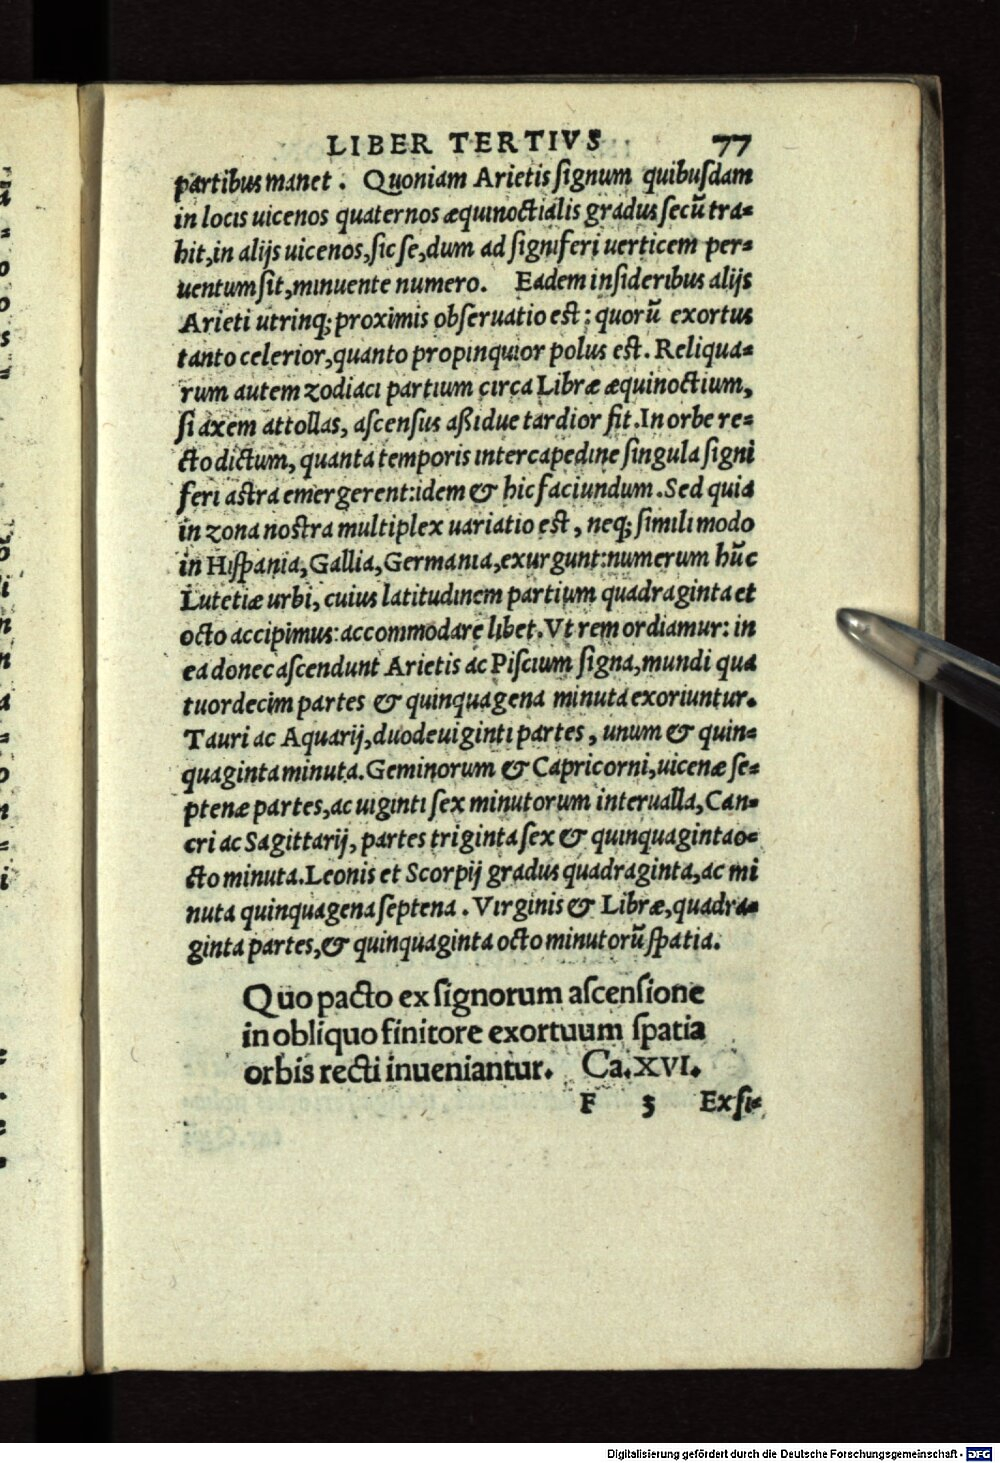 LIBER TERTIVS 77
partibus manet. Quoniam Arietis ſignum quibuſdam
in locis uicenos quaternos æquinoctialis gradus ſecū tra-
hit, in alijs uicenos, ſic ſe, dum ad ſigniferi uerticem per-
uentum ſit, minuente numero. Eadem in ſideribus alijs
Arieti utrinq; proximis obſeruatio est: quorū exortus
tanto celerior, quanto propinquior polus est. Reliqua-
rum autem zodiaci partium circa Libræ æquinoctium,
ſi axem attollas, aſcenſus aßidue tardior fit. In orbe re-
cto dictum, quanta temporis intercapedine ſingula ſigni
feri astra emergerent: idem & hic faciundum. Sed quia
in zona nostra multiplex uariatio est, neq; ſimili modo
in Hiſpania, Gallia, Germania, exurgunt: numerum hūc
Lutetiæ urbi, cuius latitudinem partium quadraginta et
octo accipimus: accommodare libet. Vt rem ordiamur: in
ea donec aſcendunt Arietis ac Piſcium ſigna, mundi qua
tuordecim partes & quinquagena minuta exoriuntur.
Tauri ac Aquarij, duodeuiginti partes, unum & quin-
quaginta minuta. Geminorum & Capricorni, uicenæ ſe-
ptenæ partes, ac uiginti ſex minutorum interualla, Can-
cri ac Sagittarij, partes triginta ſex & quinquaginta o-
cto minuta. Leonis et Scorpij gradus quadraginta, ac mi
nuta quinquagena ſeptena. Virginis & Libræ, quadra-
ginta partes, & quinquaginta octo minutorū ſpatia.
Quo pacto ex ſignorum aſcenſione
in obliquo finitore exortuum ſpatia
orbis recti inueniantur. Ca. XVI.
F 3 Ex ſi-
Digitalisierung gefördert durch die Deutsche Forschungsgemeinschaft - DFG